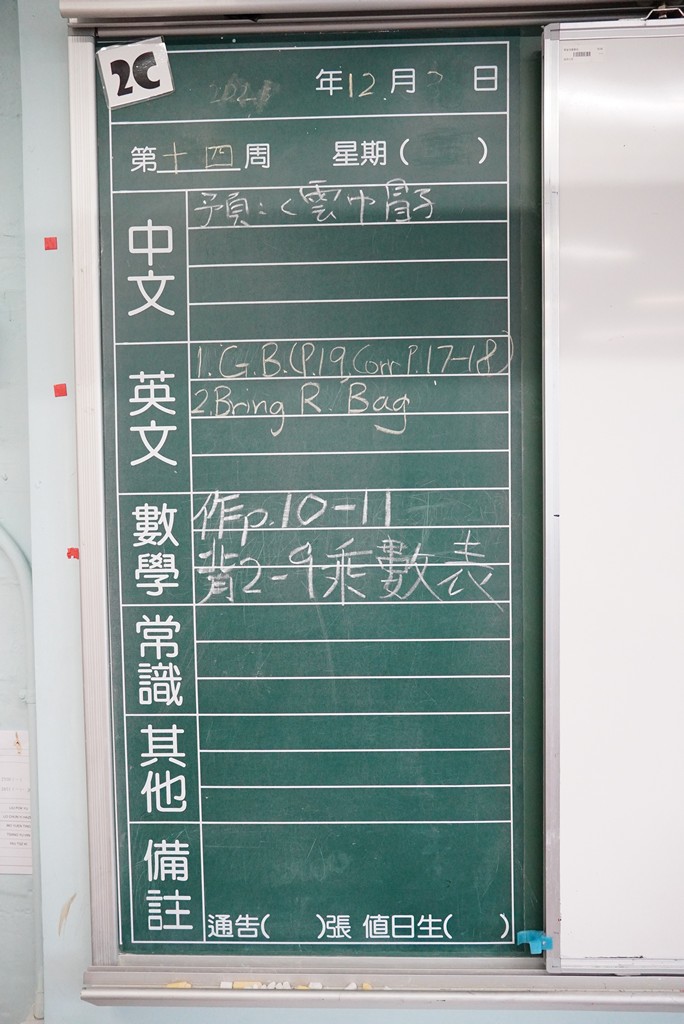 2C
年12月 日
第十四周 星期( )
中文
預:<雲中冒子
英文
1. G.B.(P.19, Corr P.17-18)
2. Bring R. Bag
數學
作p.10-11
背2-9乘數表
常識
其他
備註
通告( )張 值日生( )